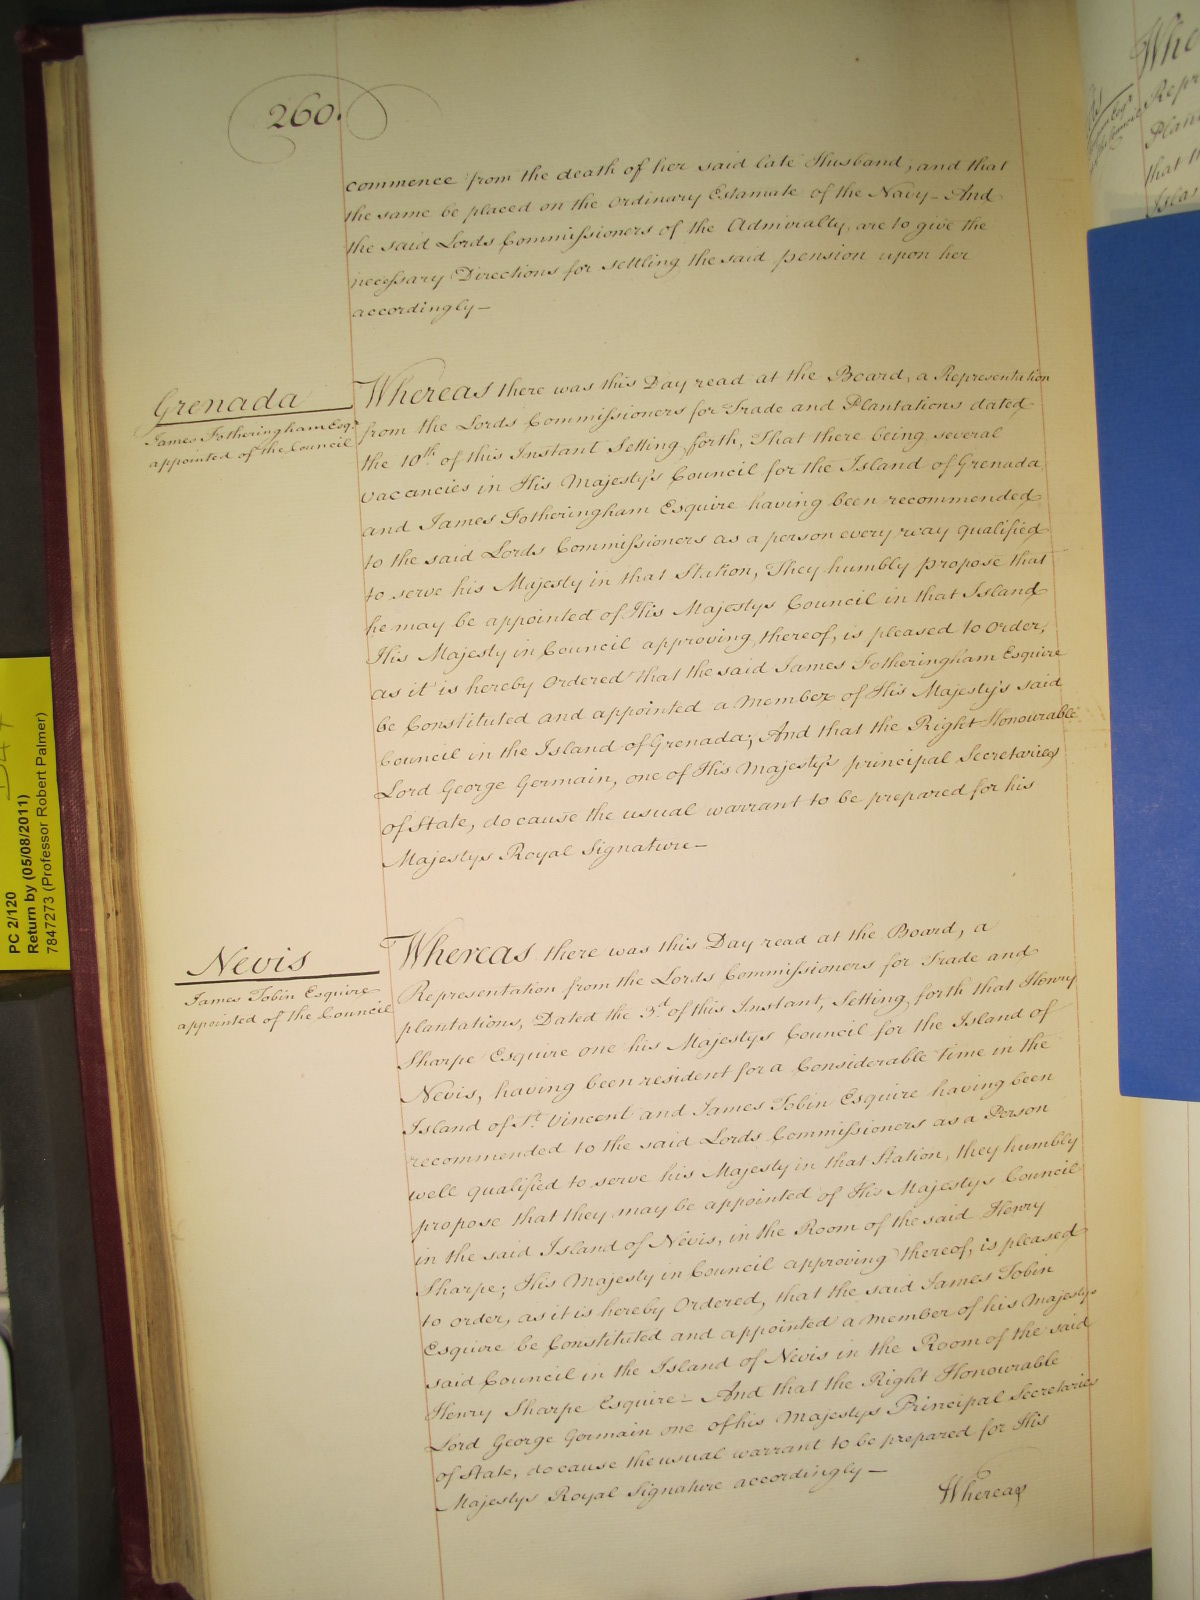 260.
commence from the death of her said late Husband, and that
the same be placed on the Ordinary Estamate of the Navy - And
the said Lords Commissioners of the Admiralty, are to give the
necessary Directions for settling the said pension upon her
accordingly—
Grenada
James Fotheringham Esqr.
appointed of the Council
Whereas there was this Day read at the Board, a Representation
from the Lords Commissioners for Trade and Plantations dated
the 10th. of this Instant Setting forth, That there being several
vacancies in His Majesty's Council for the Island of Grenada
and James Fotheringham Esquire having been recommended
to the said Lords Commissioners as a person every way qualified
to serve his Majesty in that Station, They humbly propose that
he may be appointed of His Majestys Council in that Island
His Majesty in Council approving thereof, is pleased to order,
as it is hereby Ordered that the said James Fotheringham Esquire
be Constituted and appointed a Member of His Majesty's said
Council in the Island of Grenada; And that the Right Honourable
Lord George Germain, one of His Majesty's principal Secretaries
of State, do cause the usual warrant to be prepared for his
Majestys Royal Signature—
Nevis
James Tobin Esquire
appointed of the Council
Whereas there was this Day read at the Board, a
Representation from the Lords Commissioners for Trade and
plantations, Dated the 3d. of this Instant, Setting forth that Henry
Sharpe Esquire one his Majestys Council for the Island of
Nevis, having been resident for a Considerable time in the
Island of St. Vincent and James Tobin Esquire having been
recommended to the said Lords Commissioners as a Person
well qualified to serve his Majesty in that Station, they humbly
propose that they may be appointed of His Majestys Council
in the said Island of Nevis, in the Room of the said Henry
Sharpe; His Majesty in Council approving thereof, is pleased
to order, as it is hereby Ordered, that the said James Tobin
Esquire be Constituted and appointed a Member of his Majestys
said Council in the Island of Nevis in the Room of the said
Henry Sharpe Esquire - And that the Right Honourable
Lord George Germain one of his Majestys Principal Secretaries
of State, do cause the usual warrant to be prepared for His
Majestys Royal Signature accordingly—
Whereas
PC 2/120
Return by (05/08/2011)
7847273 (Professor Robert Palmer)
Whe
Repr
Plan
that th
Islan